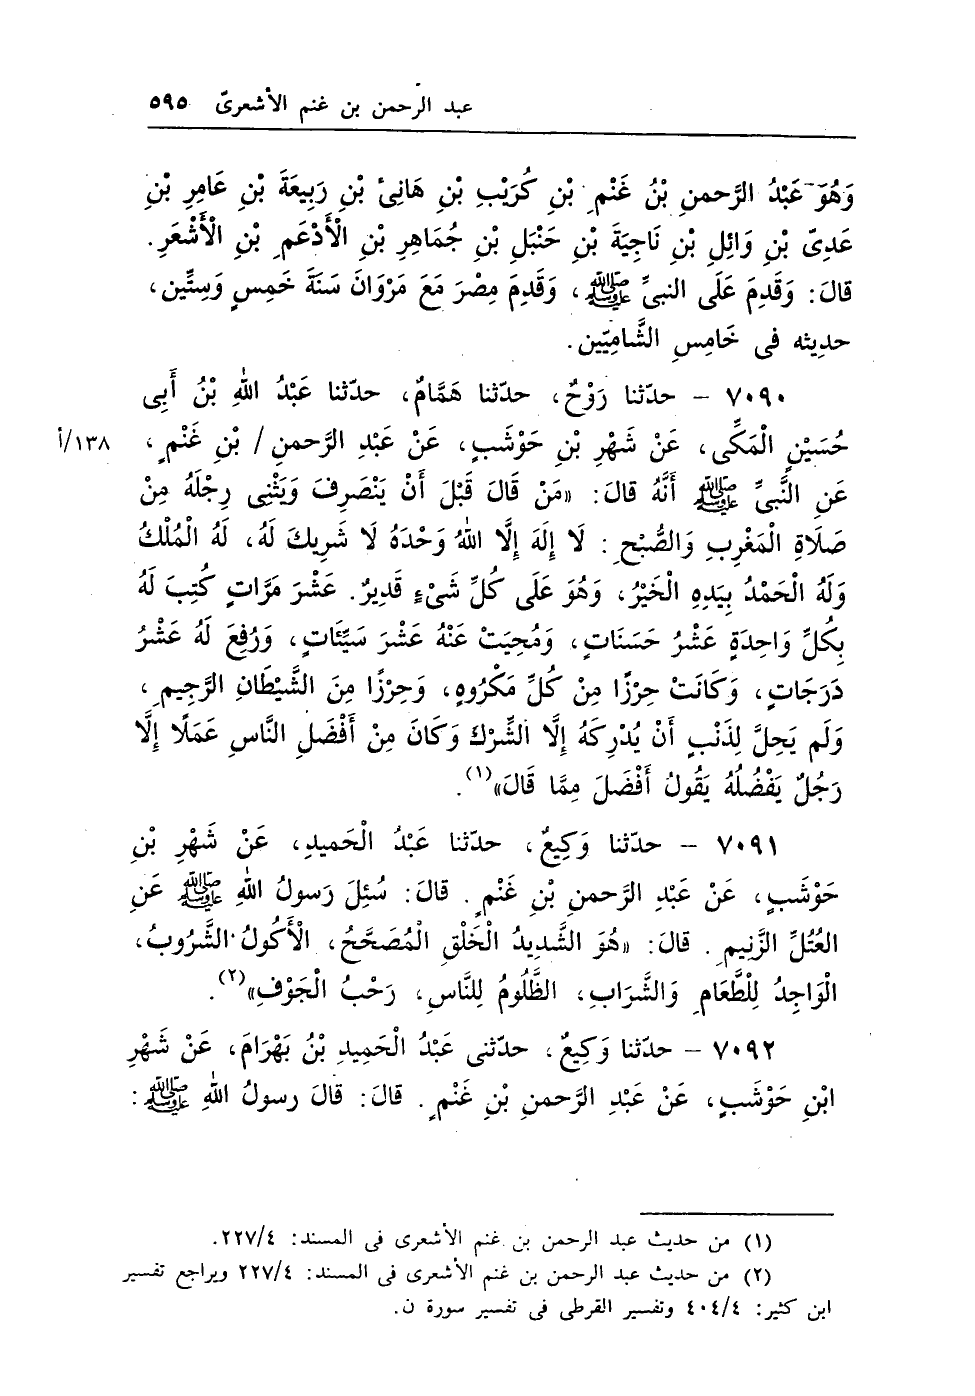 عبد الرحمن بن غنم الأشعرىّ ٥٩٥
وَهُوَ عَبْدُ الرَّحمنِ بْنُ غَنْمِ بْنِ كُرَيْبِ بْنِ هَانِئ بْنِ رَبِيعَةَ بْنِ عَامِرِ بْنِ
عَدِىّ بْنِ وَائِلِ بْنِ نَاجِيَةَ بْنِ حَنْبَلِ بْنِ جُمَاهِرِ بْنِ الْأَدْعَمِ بْنِ الْأَشْعَرِ.
قالَ: وَقَدِمَ عَلَى النبىِّ ﷺ، وَقَدِمَ مِصْرَ مَعَ مَرْوَانَ سَنَةَ خَمِسٍ وَسِتِّين،
حدِيثه فى خَامِسِ الشَّامِيّين.
٧٠٩٠ – حدّثنا رَوْحٌ، حدّثنا هَمَّامٌ، حدّثنا عَبْدُ اللهِ بْنُ أَبِى
حُسَيْنٍ الْمَكِّى، عَنْ شَهْرِ بْنِ حَوْشَبٍ، عَنْ عَبْدِ الرَّحمنِ / بْنِ غَنْمٍ، ١٣٨/أ
عَنِ النَّبىِّ ﷺ أَنَّهُ قالَ: «مَنْ قَالَ قَبْلَ أَنْ يَنْصَرِفَ وَيَثْنِى رِجْلَهُ مِنْ
صَلَاةِ الْمَغْرِبِ وَالصُّبْحِ: لَا إِلهَ إِلَّا اللهُ وَحْدَهُ لَا شَرِيكَ لَهُ، لَهُ الْمُلْكُ
وَلَهُ الْحَمْدُ بِيَدِهِ الْخَيْرُ، وَهُوَ عَلَى كُلِّ شَىْءٍ قَدِيرٌ. عَشْرَ مَرَّاتٍ كُتِبَ لَهُ
بِكُلِّ وَاحِدَةٍ عَشْرُ حَسَنَاتٍ، وَمُحِيَتْ عَنْهُ عَشْرَ سَيِّئَاتٍ، وَرُفِعَ لَهُ عَشْرُ
دَرَجَاتٍ، وَكَانَتْ حِرْزًا مِنْ كُلِّ مَكْرُوهٍ، وَحِرْزًا مِنَ الشَّيْطَانِ الرَّجِيمِ،
وَلَم يَحِلَّ لِذَنْبٍ أَنْ يُدْرِكَهُ إِلَّا الشِّرْكَ وَكَانَ مِنْ أَفْضَلِ النَّاسِ عَمَلًا إِلَّا
رَجُلٌ يَفْضُلُهُ يَقُولُ أَفْضَلَ مِمَّا قَالَ»(١).
٧٠٩١ – حدّثنا وَكِيعٌ، حدّثنا عَبْدُ الْحَمِيدِ، عَنْ شَهْرِ بْنِ
حَوْشَبٍ، عَنْ عَبْدِ الرَّحمنِ بْنِ غَنْمٍ. قالَ: سُئِلَ رَسولُ اللهِ ﷺ عَنِ
العُتُلِّ الزَّنِيمِ. قالَ: «هُوَ الشَّدِيدُ الْخَلْقِ الْمُصَحَّحُ، الْأَكُولُ الشَّرُوبُ،
الْوَاجِدُ لِلْطَّعَامِ وَالشَّرَابِ، الظَّلُومُ لِلنَّاسِ، رَحْبُ الْجَوْفِ»(٢).
٧٠٩٢ – حدّثنا وَكِيعٌ، حدّثنى عَبْدُ الْحَمِيدِ بْنُ بَهْرَامَ، عَنْ شَهْرِ
ابْنِ حَوْشَبٍ، عَنْ عَبْدِ الرَّحمنِ بْنِ غَنْمٍ. قالَ: قالَ رسولُ اللهِ ﷺ:
(١) من حديث عبد الرحمن بن غنم الأشعرى فى المسند: ٢٢٧/٤.
(٢) من حديث عبد الرحمن بن غنم الأشعرى فى المسند: ٢٢٧/٤ ويراجع تفسير
ابن كثير: ٤٠٤/٤ وتفسير القرطى فى تفسير سورة ن.